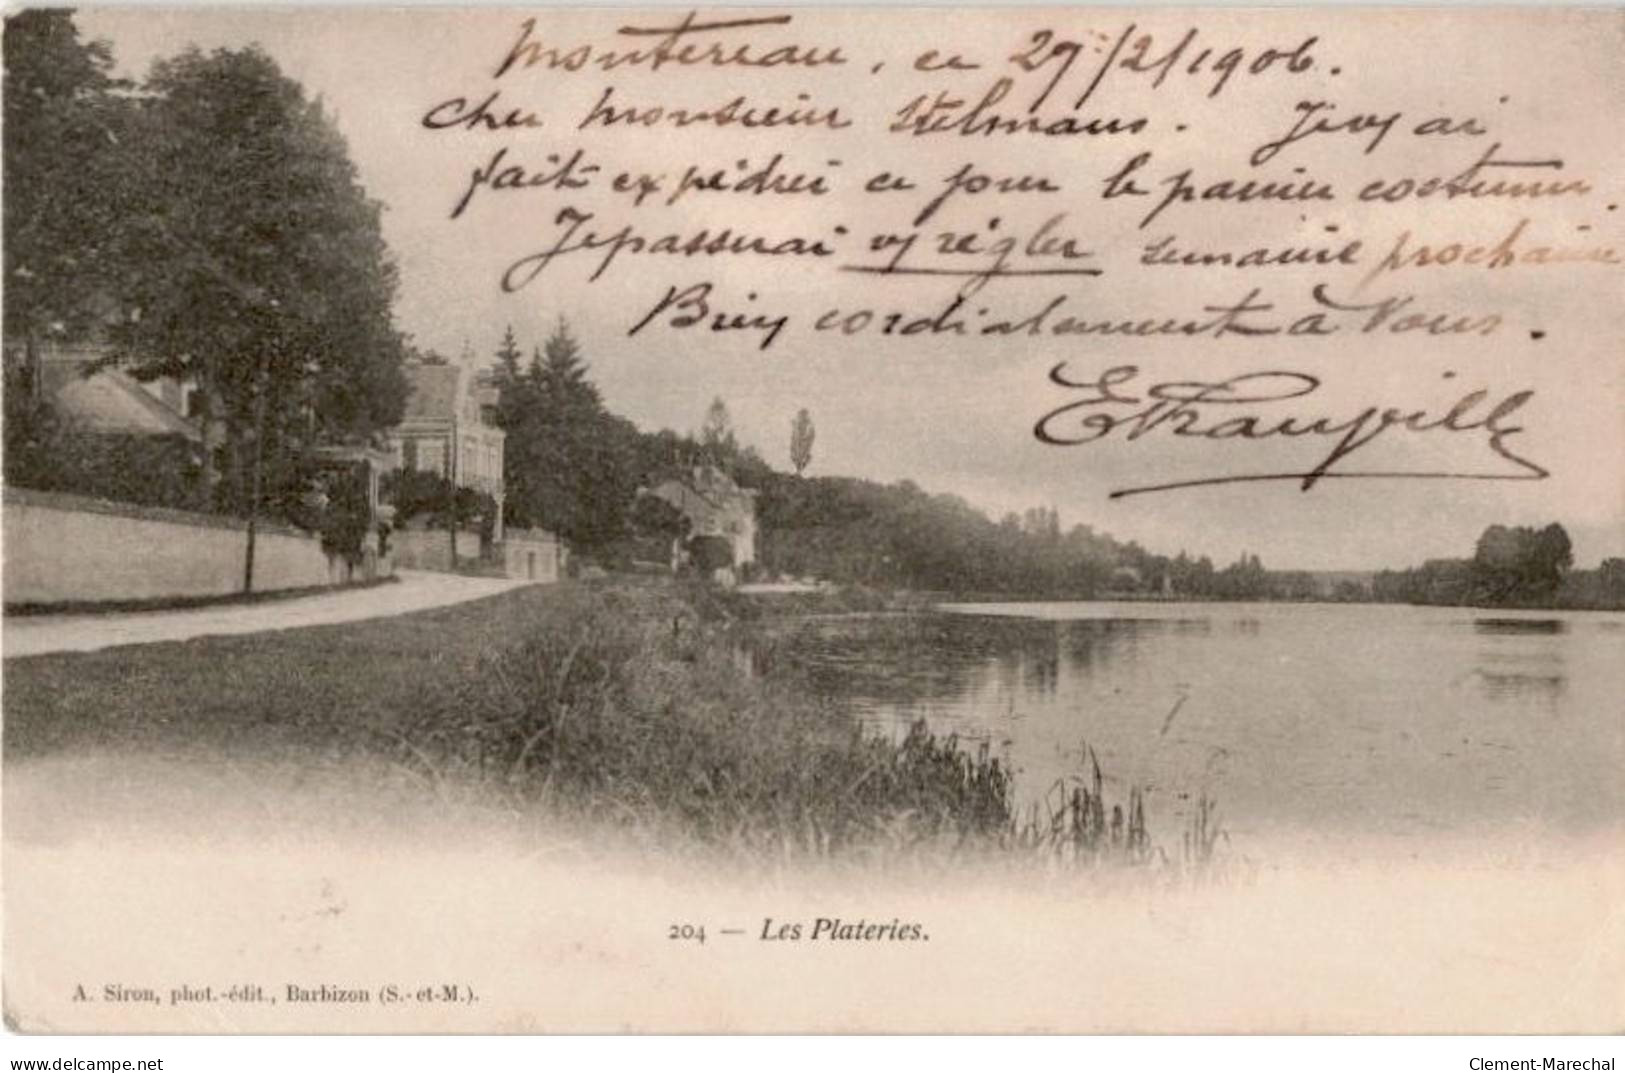 Montereau, ce 29/2/1906.
Cher Monsieur Stelmans. Je vs ai
fait expédier ce jour le panier costumes.
Je passerai vs régler semaine prochaine
Bien cordialement à Vous.
204 — Les Plateries.
A. Siron, phot.-édit., Barbizon (S.-et-M.).
delcampe.net
Clement-Marechal